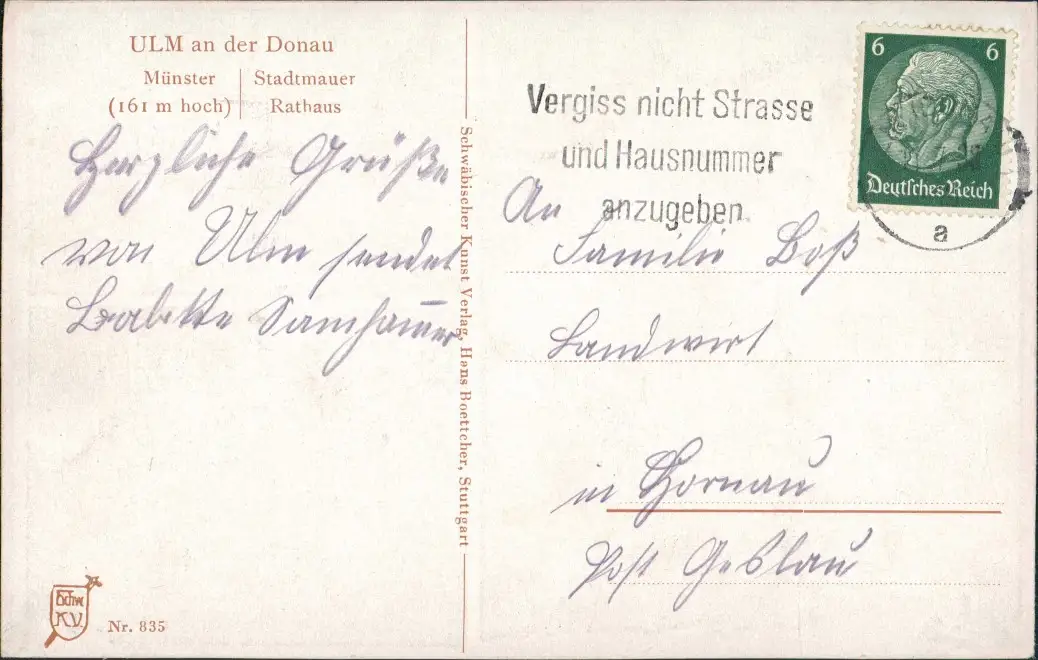 ULM an der Donau
Münster | Stadtmauer
(161 m hoch) | Rathaus
Herzliche Grüße
von Ulm sendet
Samhammer
Schwäbischer Kunst Verlag, Hans Boettcher, Stuttgart
Schw.
K.V.
Nr. 835
Vergiss nicht Strasse
und Hausnummer
anzugeben
6 6
Deutsches Reich
a
An
Familie Boß
Landwirt
in Hornau
Post Geslau